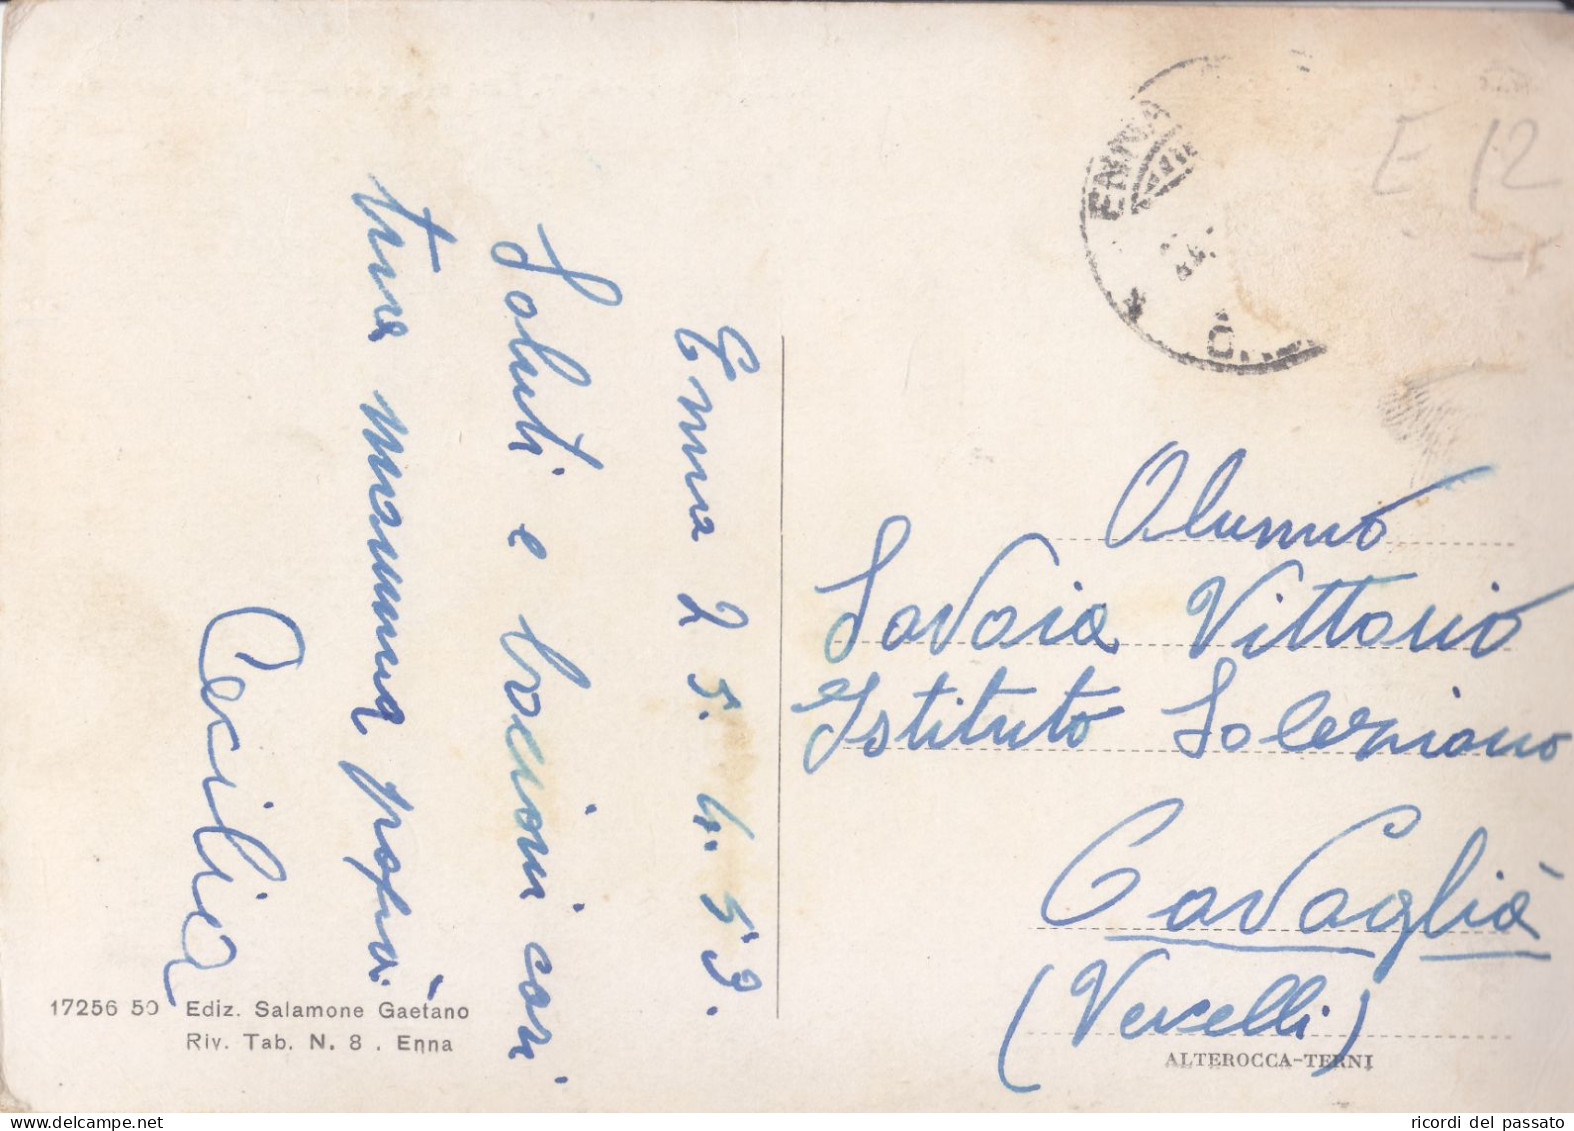 Enna 25.4.53.
Saluti e bacioni cari
tua mamma papà
Cecilia
17256 50 Ediz. Salamone Gaetano
Riv. Tab. N. 8 . Enna
ENNA
E 12
Alunno
Savoia Vittorio
Istituto Salesiano
Cavaglià
(Vercelli)
ALTEROCCA-TERNI
ricordi del passato